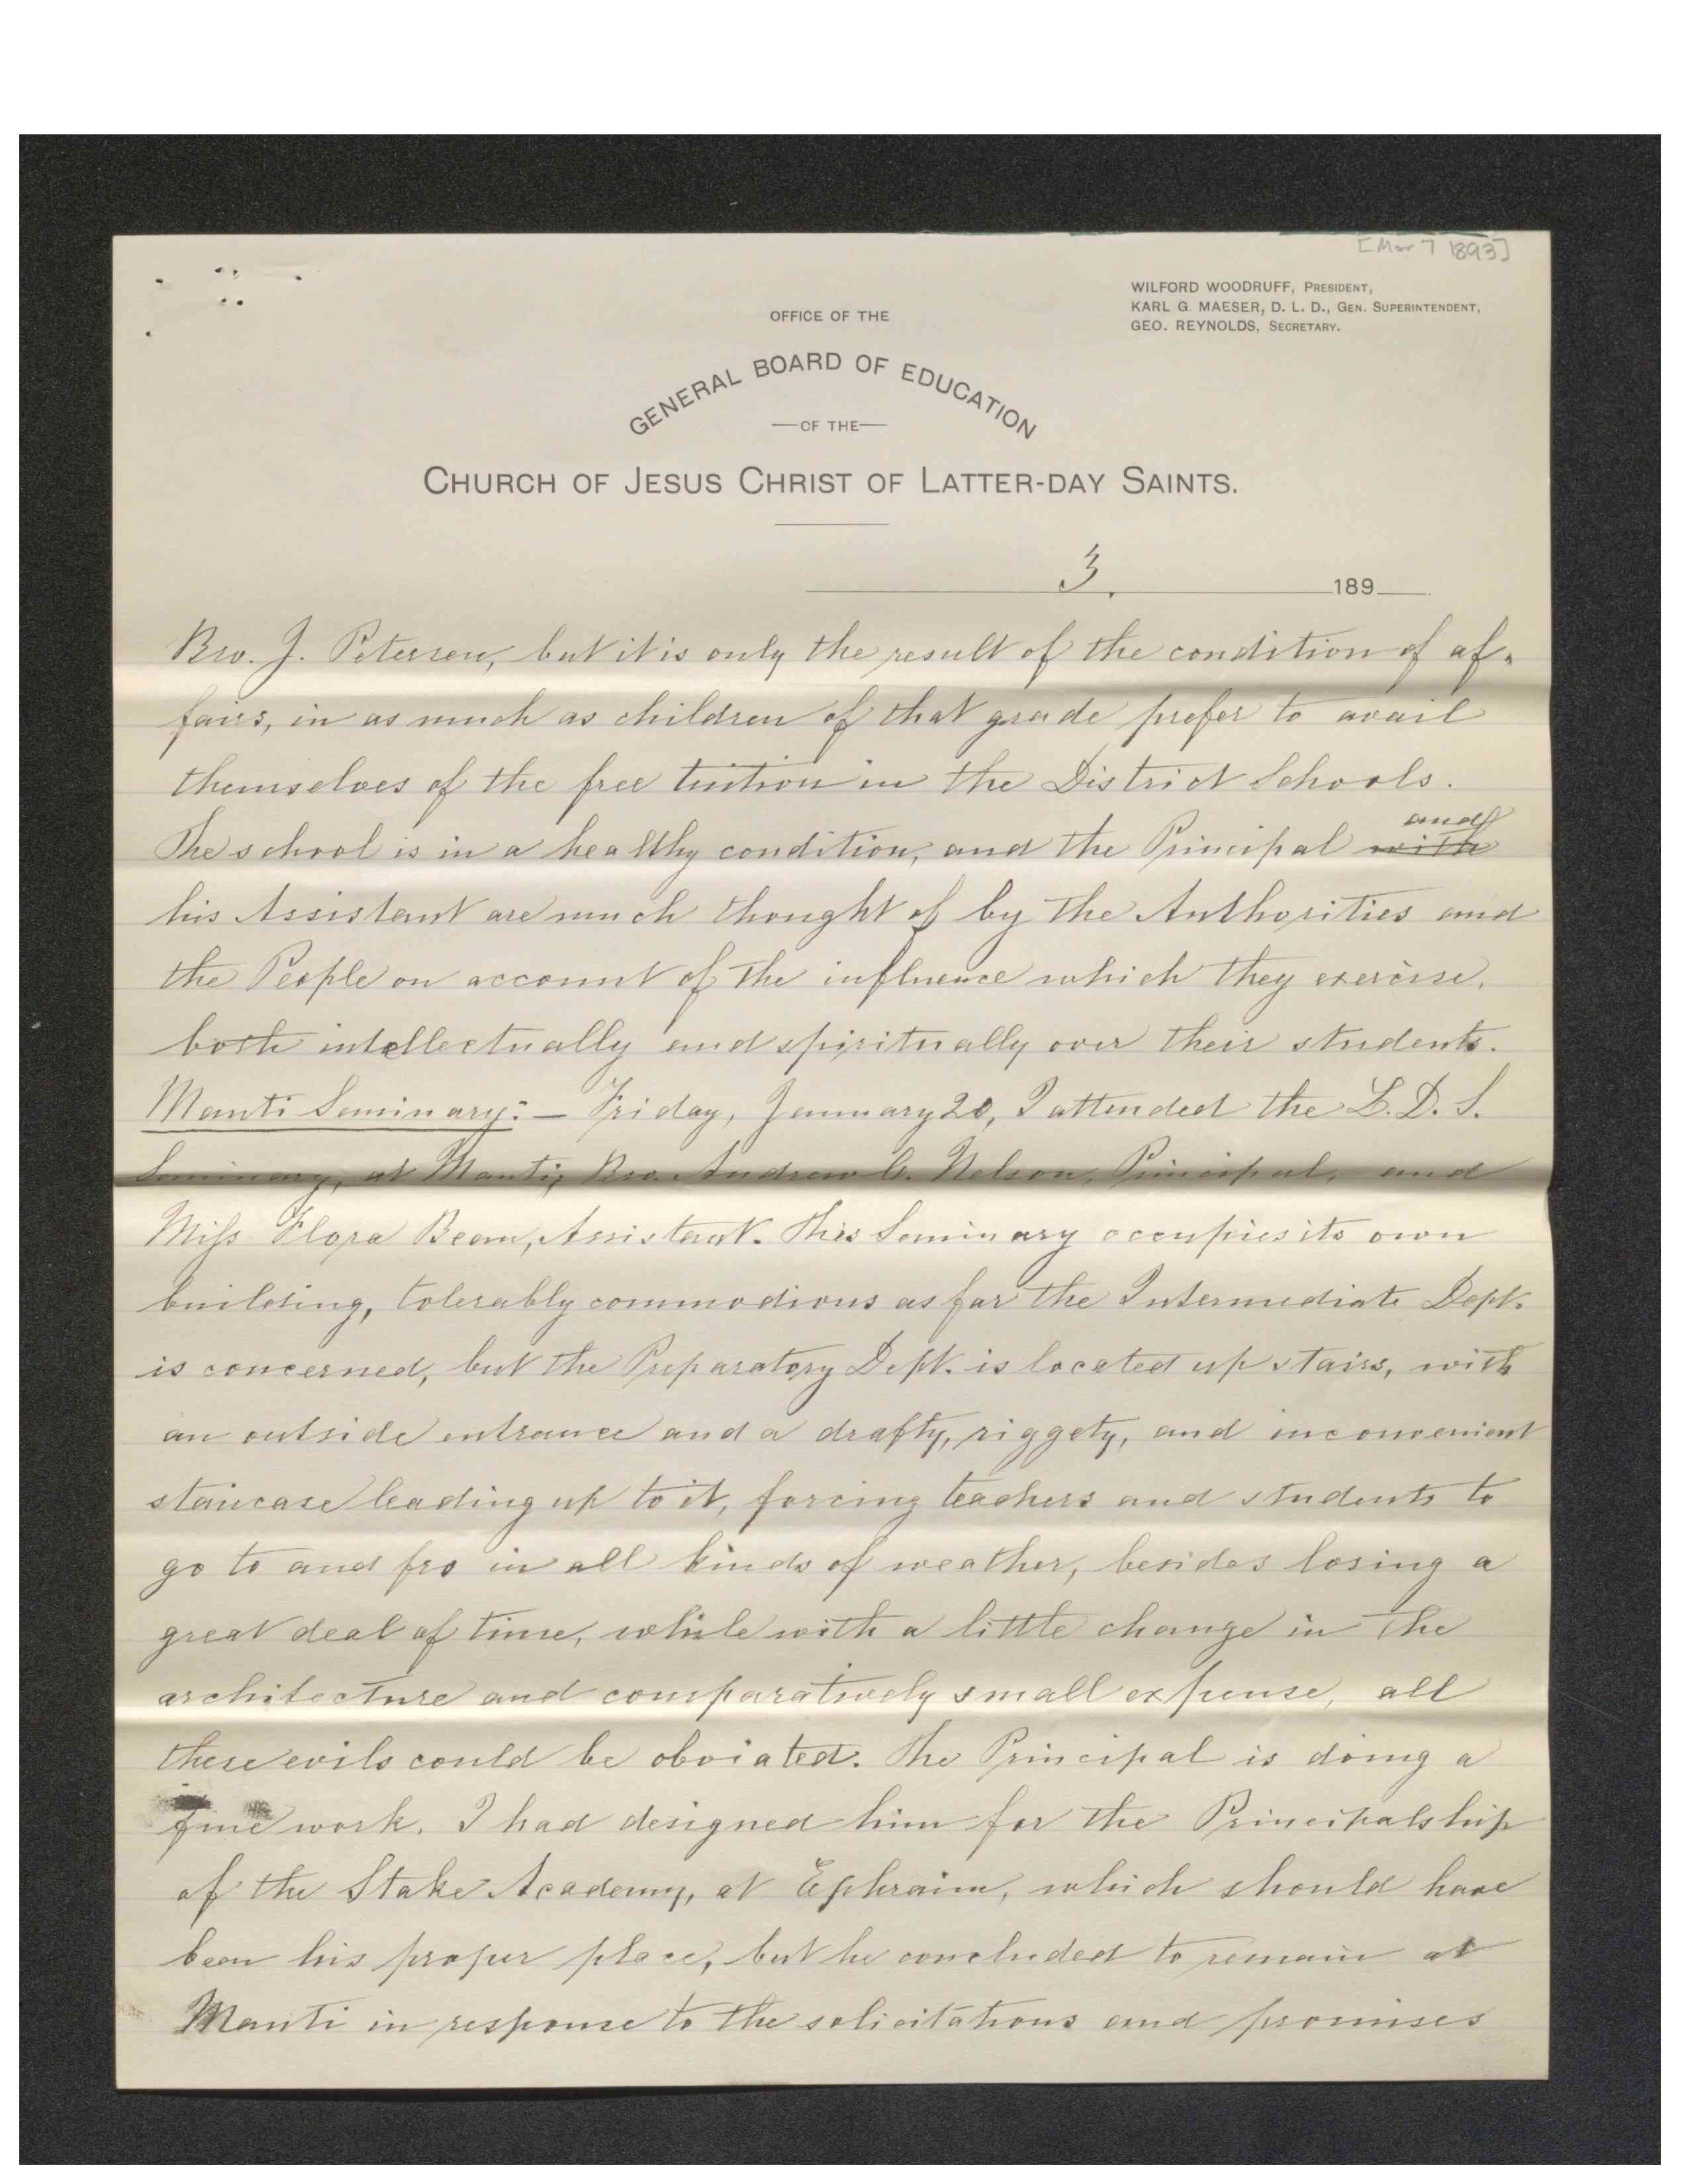 [Mar 7 1893]
WILFORD WOODRUFF, PRESIDENT,
KARL G. MAESER, D. L. D., GEN. SUPERINTENDENT,
GEO. REYNOLDS, SECRETARY.
OFFICE OF THE
GENERAL BOARD OF EDUCATION
—OF THE—
CHURCH OF JESUS CHRIST OF LATTER-DAY SAINTS.
3. 189
Bro. J. Petersen, but it is only the result of the condition of af-
fairs, in as much as children of that grade prefer to avail
themselves of the free tuition in the District Schools.
and
The school is in a healthy condition, and the Principal with
his Assistant are much thought of by the Authorities and
the People on account of the influence which they exercise,
both intellectually and spiritually over their students.
Manti Seminary:— Friday, January 20, I attended the L. D. S.
Seminary, at Manti, Bro. Andrew C. Nelson, Principal, and
Miss Flora Bean, Assistant. This Seminary occupies its own
building, tolerably commodious as far the Intermediate Dept.
is concerned, but the Preparatory Dept. is located up stairs, with
an outside entrance and a drafty, riggety, and inconvenient
staircase leading up to it, forcing teachers and students to
go to and fro in all kinds of weather, besides losing a
great deal of time, while with a little change in the
architecture and comparatively small expense, all
these evils could be obviated. The Principal is doing a
fine work. I had designed him for the Principalship
of the Stake Academy, at Ephraim, which should have
been his proper place, but he concluded to remain at
Manti in response to the solicitations and promises